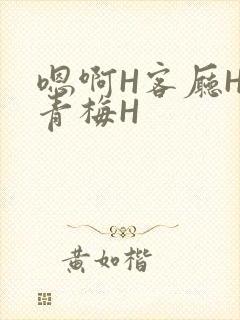 嗯啊H客厅H
青梅H
黄如楷